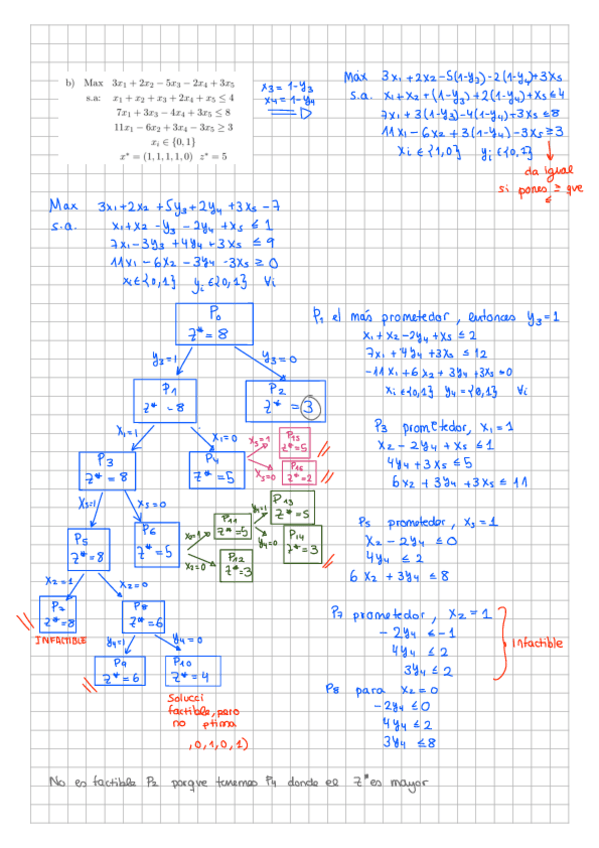 b) Max 3x₁ + 2x₂ − 5x₃ − 2x₄ + 3x₅
s.a: x₁ + x₂ + x₃ + 2x₄ + x₅ ≤ 4
7x₁ + 3x₃ − 4x₄ + 3x₅ ≤ 8
11x₁ − 6x₂ + 3x₄ − 3x₅ ≥ 3
xᵢ ∈ {0, 1}
x* = (1, 1, 1, 1, 0) z* = 5
x₃ = 1-y₃
x₄ = 1-y₄
Máx 3x₁ + 2x₂ - 5(1-y₃) - 2(1-y₄) + 3x₅
s.a. x₁ + x₂ + (1-y₃) + 2(1-y₄) + x₅ ≤ 4
7x₁ + 3(1-y₃) - 4(1-y₄) + 3x₅ ≤ 8
11x₁ - 6x₂ + 3(1-y₄) - 3x₅ ≥ 3
xᵢ ∈ {1,0} yᵢ ∈ {0,1}
da igual
si pones ≥ que
≤
Max 3x₁ + 2x₂ + 5y₃ + 2y₄ + 3x₅ - 7
s.a. x₁ + x₂ - y₃ - 2y₄ + x₅ ≤ 1
7x₁ - 3y₃ + 4y₄ + 3x₅ ≤ 9
11x₁ - 6x₂ - 3y₄ - 3x₅ ≥ 0
xᵢ ∈ {0,1} yᵢ ∈ {0,1} ∀i
P₀
z* = 8
y₃=1 y₃=0
P₁
z* = 8
P₂
z* = 3
x₁=1 x₁=0
P₃
z* = 8
P₄
z* = 5
x₅=1
P₁₅
z* = 5
x₅=0
P₁₆
z* = 2
x₅=1 x₅=0
P₅
z* = 8
P₆
z* = 5
x₂=1
P₁₁
z* = 5
x₂=0
P₁₂
z* = 3
y₄=1
P₁₃
z* = 5
y₄=0
P₁₄
z* = 3
x₂=1 x₂=0
P₇
z* = 8
INFACTIBLE
P₈
z* = 6
y₄=1 y₄=0
P₉
z* = 6
P₁₀
z* = 4
Solucci
factible, pero
no ptima
,0,1,0,1)
P₁ el más prometedor, entonces y₃=1
x₁ + x₂ - 2y₄ + x₅ ≤ 2
7x₁ + 4y₄ + 3x₅ ≤ 12
-11x₁ + 6x₂ + 3y₄ + 3x₅ ≤ 0
xᵢ ∈ {0,1} y₄ = {0,1} ∀i
P₃ prometedor, x₁ = 1
x₂ - 2y₄ + x₅ ≤ 1
4y₄ + 3x₅ ≤ 5
6x₂ + 3y₄ + 3x₅ ≤ 11
P₅ prometedor, x₅ = 1
x₂ - 2y₄ ≤ 0
4y₄ ≤ 2
6x₂ + 3y₄ ≤ 8
P₇ prometedor, x₂ = 1
- 2y₄ ≤ -1
4y₄ ≤ 2
3y₄ ≤ 2
Infactible
P₈ para x₂ = 0
- 2y₄ ≤ 0
4y₄ ≤ 2
3y₄ ≤ 8
No es factible P₂ porque tenemos P₄ donde el z* es mayor